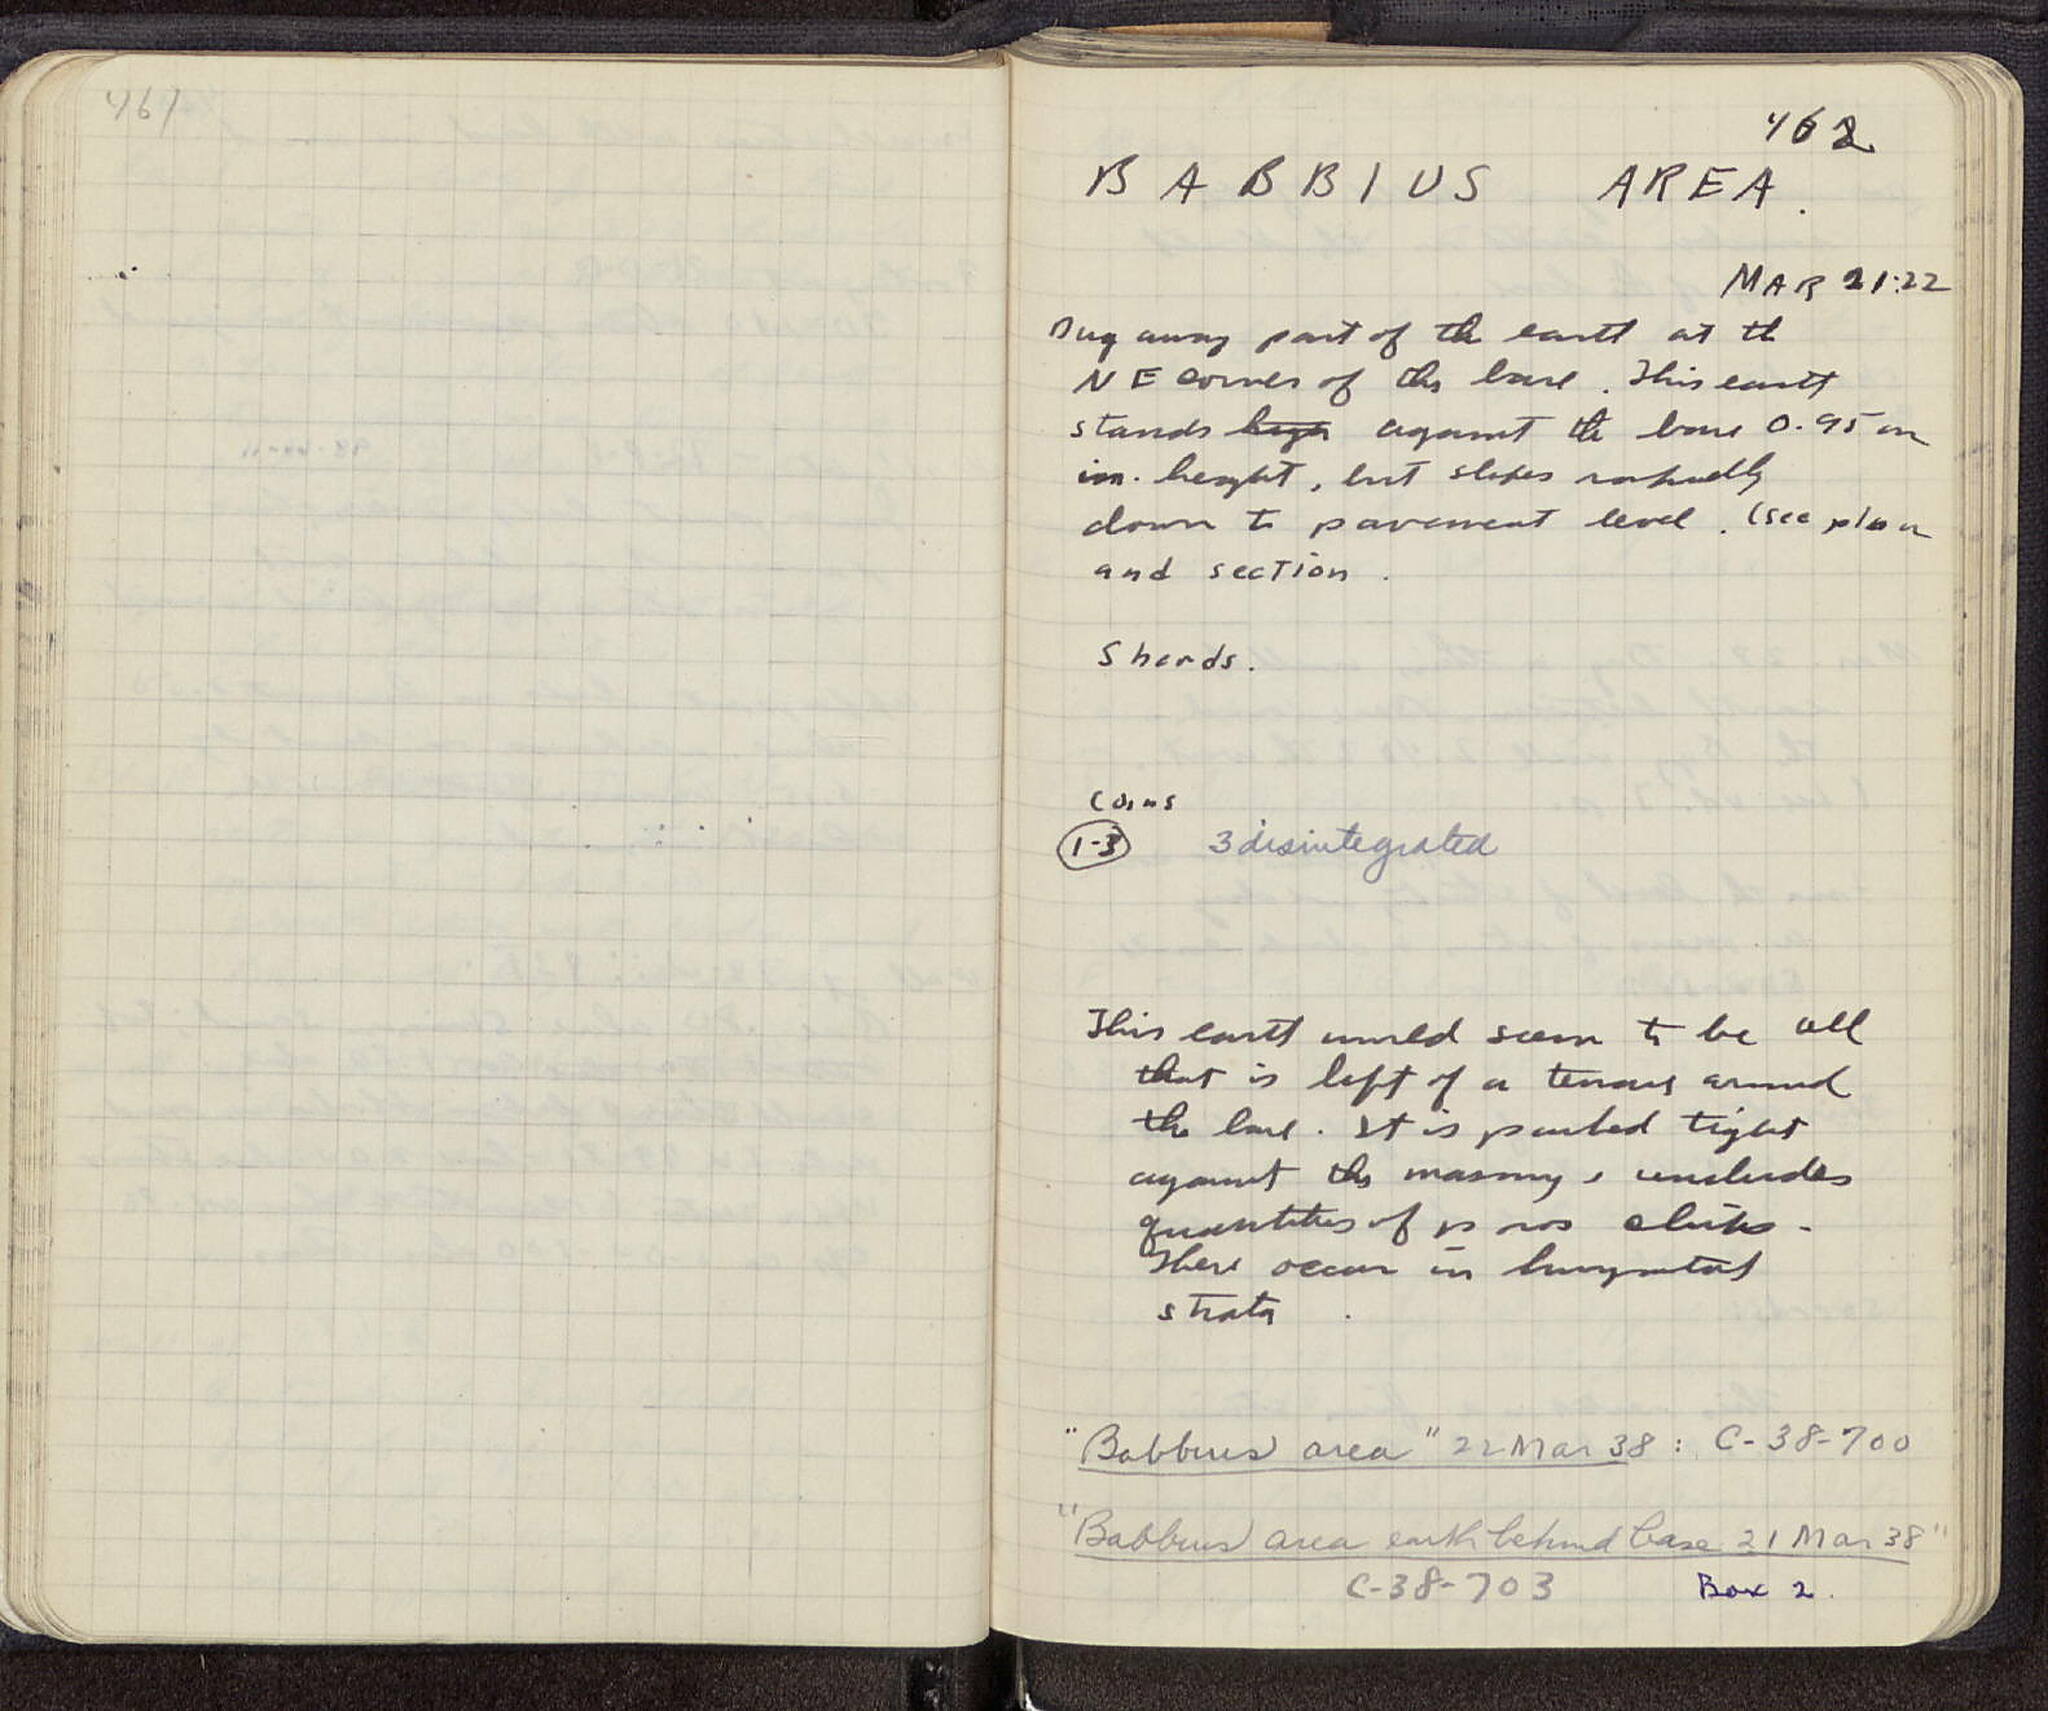 461
462
BABBIUS AREA.
MAR 21:22
Dug away part of the earth at the
NE corner of the base. This earth
stands high against the base 0.95 m
in. height, but slopes rapidly
down to pavement level. (see plan
and section.
Sherds.
Coins
1-3 3 disintegrated
This earth would seem to be all
that is left of a terrace around
the base. It is packed tight
against the masonry, includes
quantities of poros chips.
These occur in horizontal
strata.
"Babbius area" 22 Mar 38: C-38-700
"Babbius area earth behind base 21 Mar 38"
C-38-703 Box 2.